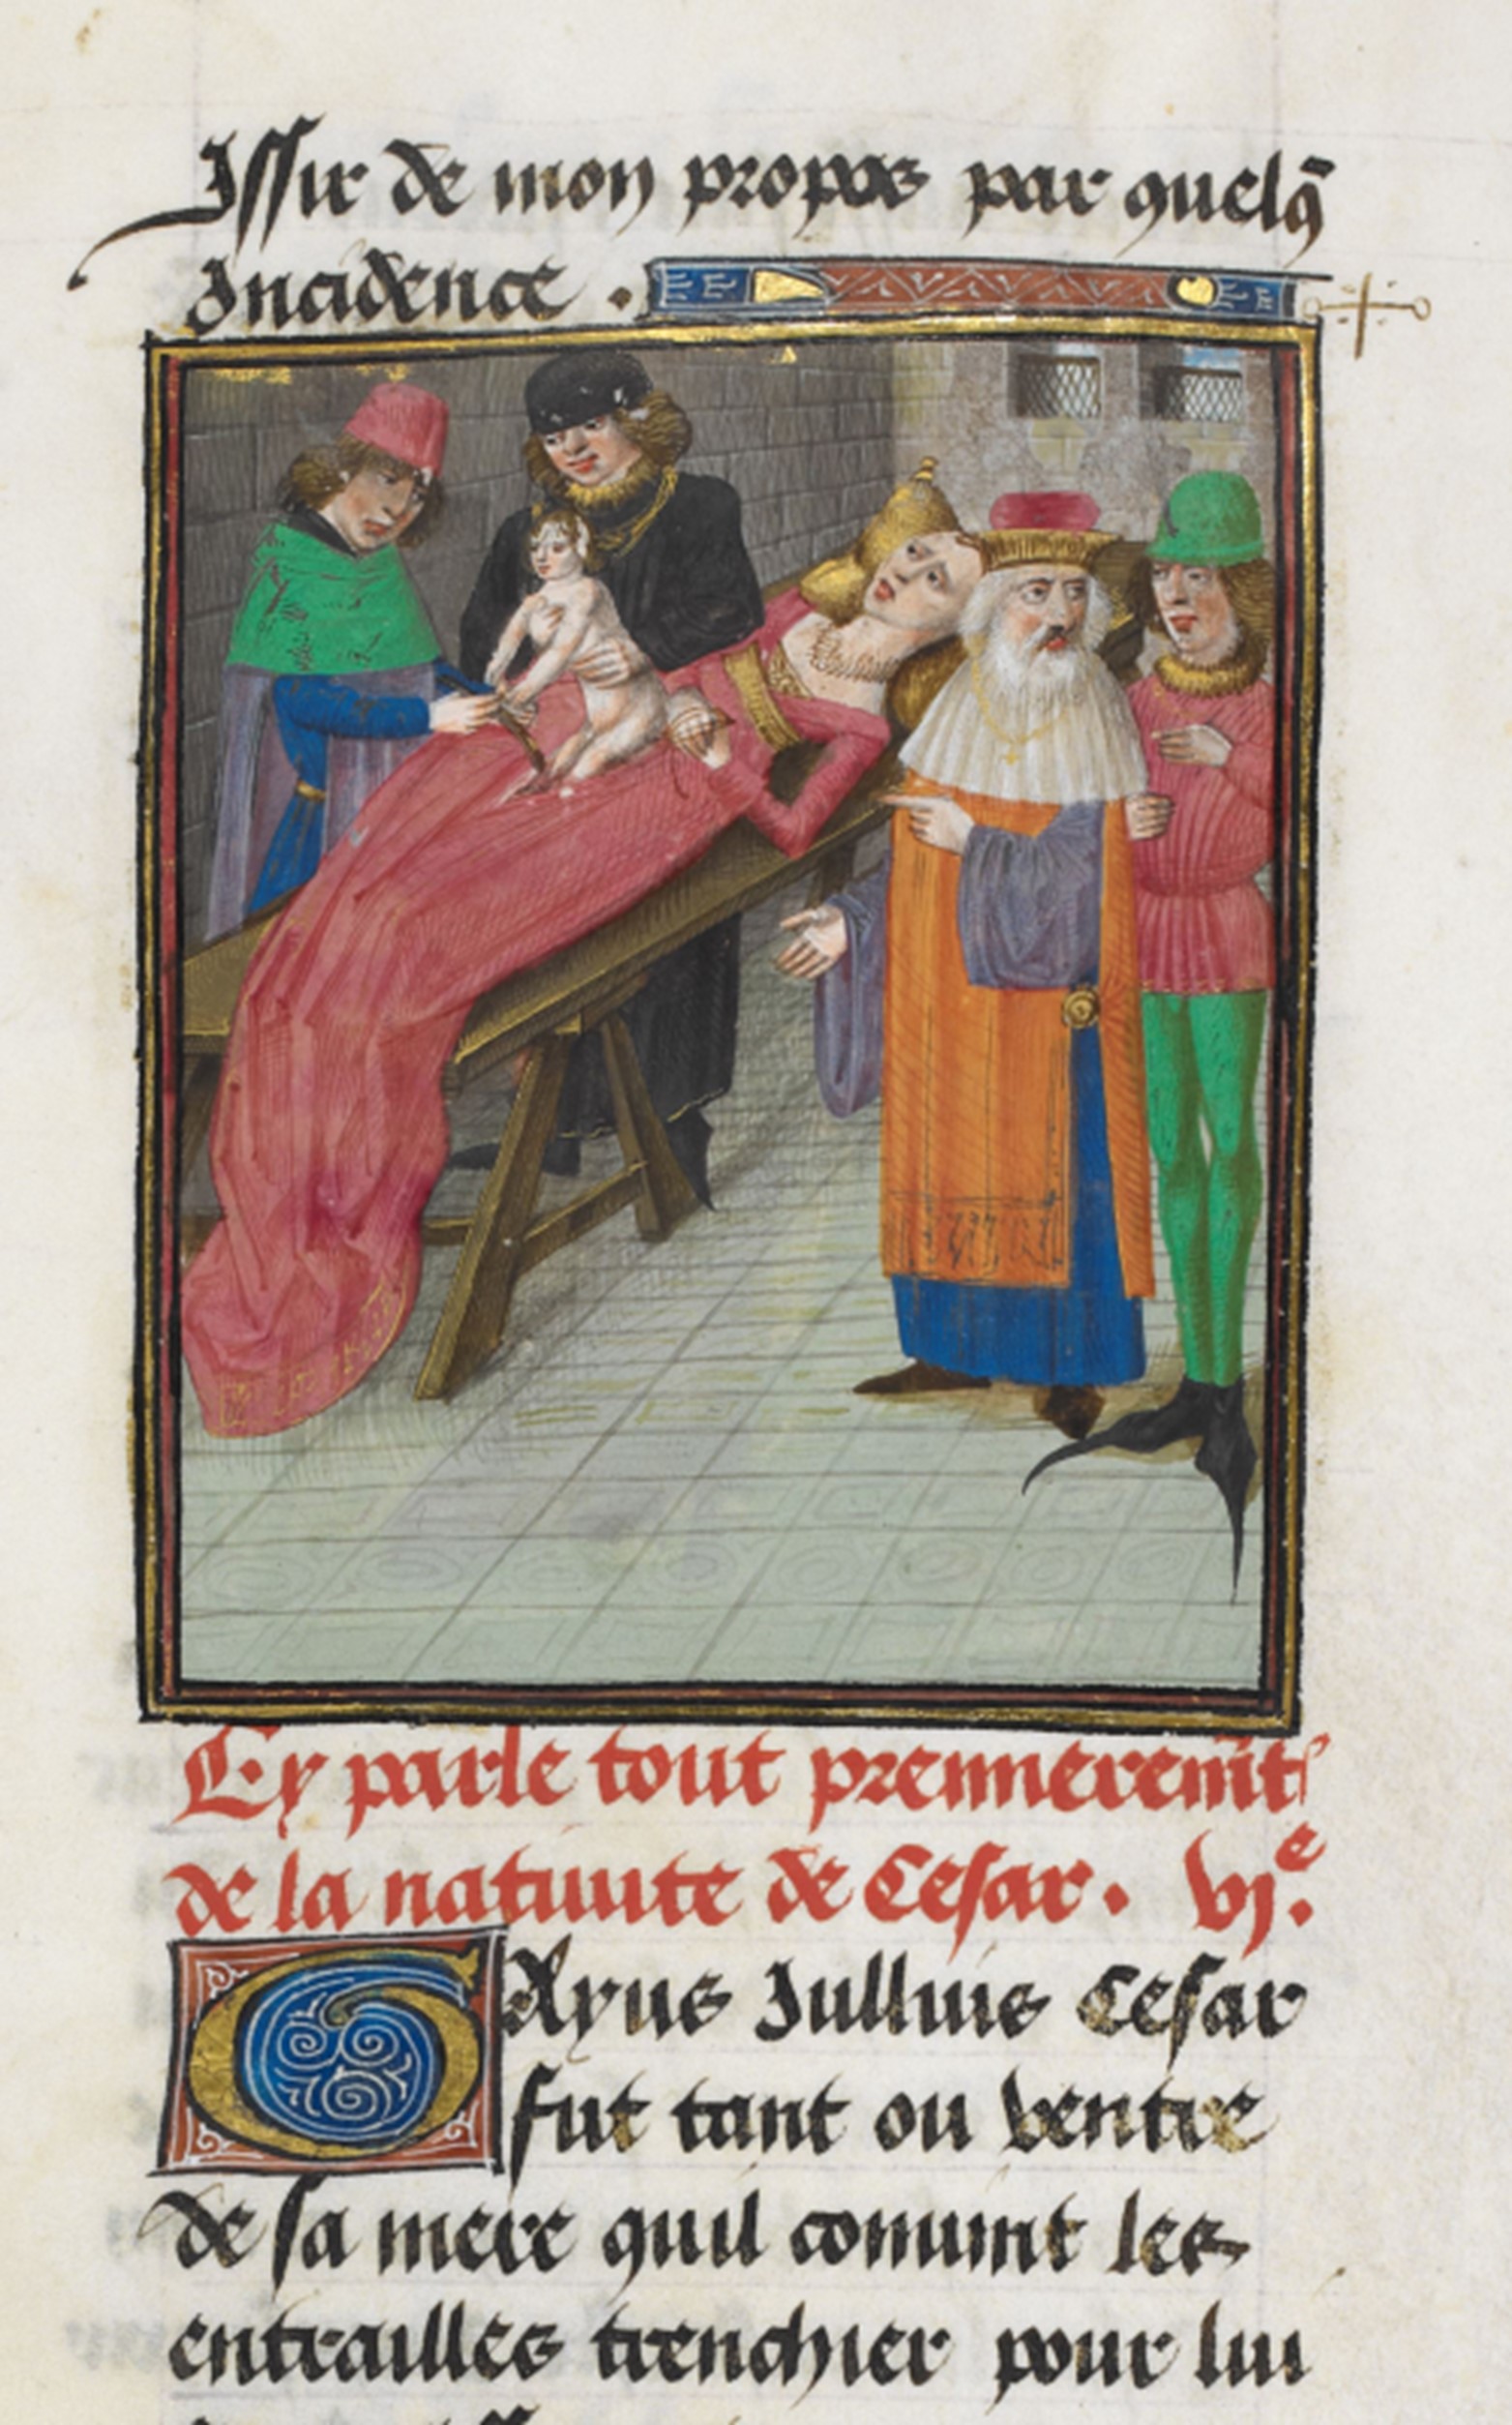 Issir de mon propos par quelq̄
Incidence .
Cy parle tout premierem̄t
de la natiuite de Cesar . vjᵉ.
GAyus Jullius Cesar
fut tant ou ventre
de sa mere quil conuint les
entrailles trenchier pour lui